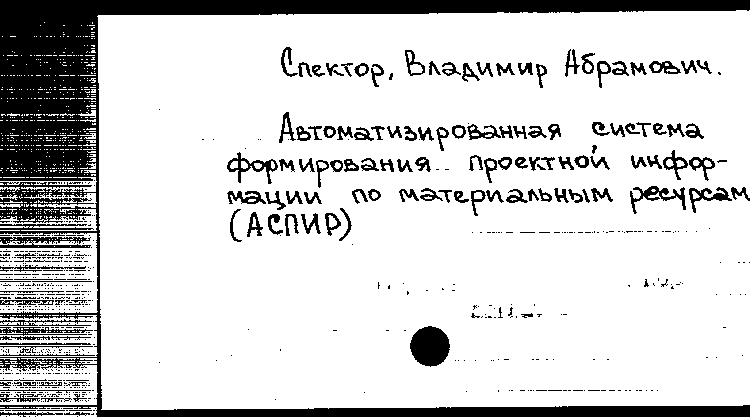 Спектор, Владимир Абрамович.
Автоматизированная система
формирования проектной инфор-
мации по материальным ресурсам
(АСПИР)